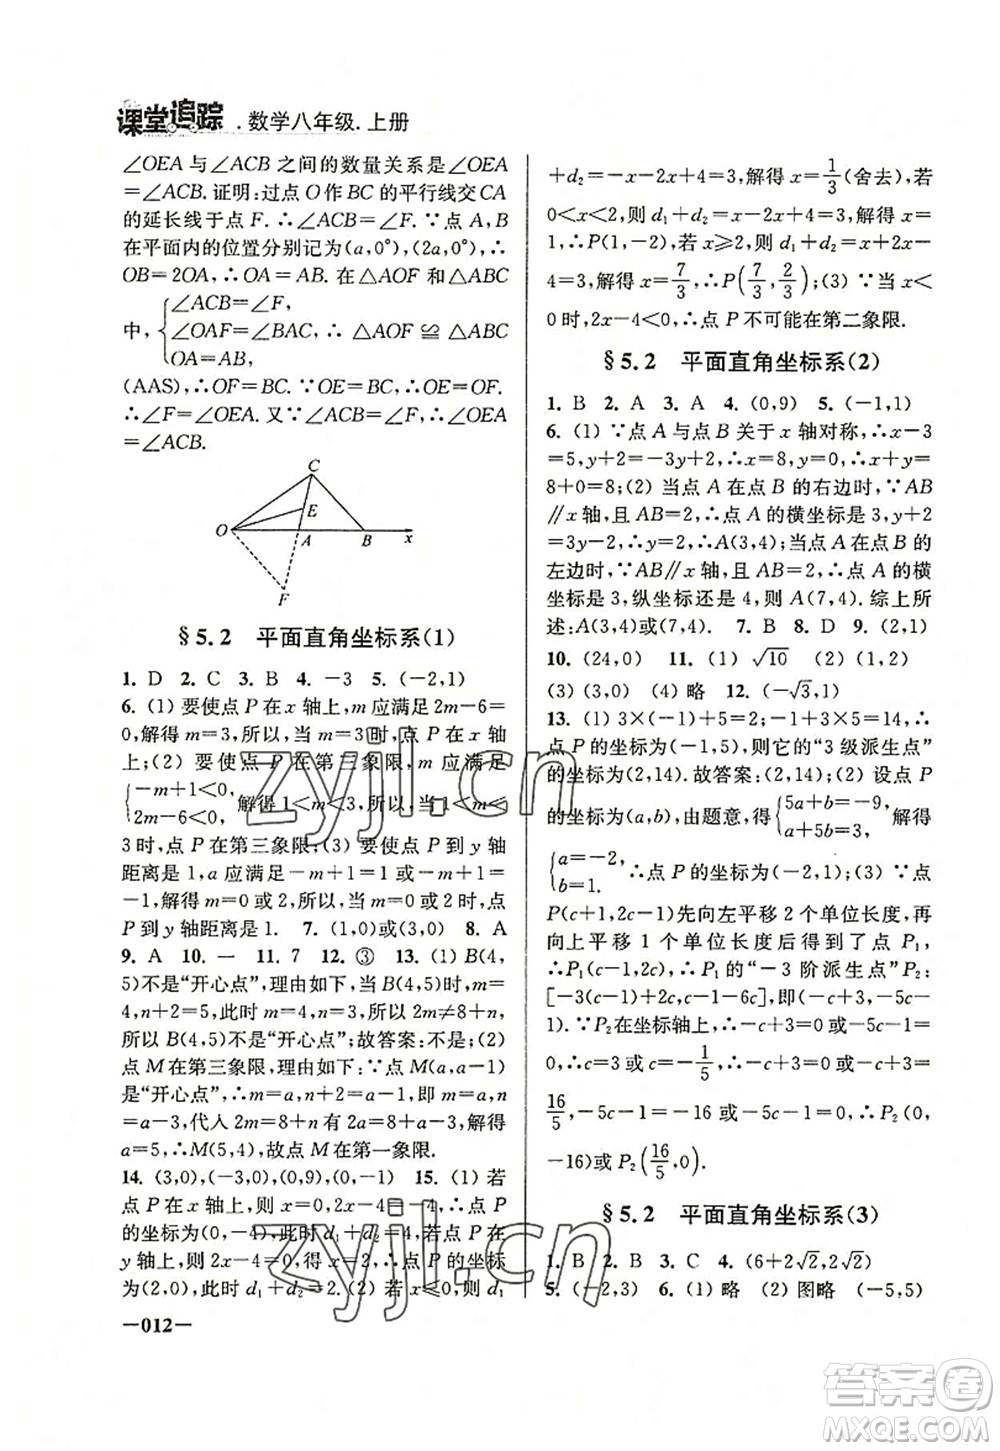 课堂追踪.数学八年级.上册
∠OEA与∠ACB之间的数量关系是∠OEA
=∠ACB.证明:过点O作BC的平行线交CA
的延长线于点F.∴∠ACB=∠F.∵点A,B
在平面内的位置分别记为(a,0°),(2a,0°),∴
OB=2OA,∴OA=AB.在△AOF和△ABC
中,{∠ACB=∠F,
∠OAF=∠BAC,∴△AOF≌△ABC
OA=AB,
(AAS),∴OF=BC.∵OE=BC,∴OE=OF.
∴∠F=∠OEA.又∵∠ACB=∠F,∴∠OEA
=∠ACB.
C
E
O A B x
F
§5.2 平面直角坐标系(1)
1. D 2. C 3. B 4. -3 5. (-2,1)
6. (1)要使点P在x轴上,m应满足2m-6=
0,解得m=3,所以,当m=3时,点P在x轴
上;(2)要使点P在第三象限,m应满足
{-m+1<0,
2m-6<0,解得1<m<3,所以,当1<m<
3时,点P在第三象限;(3)要使点P到y轴
距离是1,a应满足-m+1=1或-m+1=
-1,解得m=0或2,所以,当m=0或2时,点
P到y轴距离是1. 7. (1,0)或(3,0) 8. A
9. A 10. 一 11. 7 12. ③ 13. (1)B(4,
5)不是“开心点”,理由如下,当B(4,5)时,m=
4,n+2=5,此时m=4,n=3,所以2m≠8+n,
所以B(4,5)不是“开心点”;故答案:不是;(2)
点M在第一象限,理由如下:∵点M(a,a-1)
是“开心点”,∴m=a,n+2=a-1,∴m=a,n
=a-3,代入2m=8+n有2a=8+a-3,解得
a=5,∴M(5,4),故点M在第一象限.
14. (3,0),(-3,0),(0,9),(0,-1) 15. (1)若
点P在x轴上,则x=0,2x-4=-4,∴点P
的坐标为(0,-4),此时d₁+d₂=4.若点P在
y轴上,则2x-4=0,得x=2,∴点P的坐标为
(2,0),此时d₁+d₂=2.(2)若x≤0,则d₁
—012—
+d₂=-x-2x+4=3,解得x=1/3(舍去),若
0<x<2,则d₁+d₂=x-2x+4=3,解得x=
1,∴P(1,-2),若x≥2,则d₁+d₂=x+2x
-4=3,解得x=7/3,∴P(7/3,2/3);(3)∵当x<
0时,2x-4<0,∴点P不可能在第二象限.
§5.2 平面直角坐标系(2)
1. B 2. A 3. A 4. (0,9) 5. (-1,1)
6. (1)∵点A与点B关于x轴对称,∴x-3
=5,y+2=-3y+2,解得x=8,y=0,∴x+y=
8+0=8;(2)当点A在点B的右边时,∵AB
∥x轴,且AB=2,∴点A的横坐标是3,y+2
=3y-2,∴A(3,4);当点A在点B的
左边时,∵AB∥x轴,且AB=2,∴点A的横坐
标是3,纵坐标还是4,则A(7,4).综上所
述:A(3,4)或(7,4). 7. B 8. D 9. (2,1)
10. (24,0) 11. (1)√10 (2)(1,2)
(3)(3,0) (4)略 12. (-√3,1)
13. (1)3×(-1)+5=2;-1+3×5=14,∴
点P的坐标为(-1,5),则它的“3级派生点”
的坐标为(2,14).故答案:(2,14);(2)设点P
的坐标为(a,b),由题意,得{5a+b=-9,
a+5b=3,
{a=-2,
b=1.∴点P的坐标为(-2,1);(3)∵
P(c+1,2c-1)先向左平移2个单位长度,再
向上平移1个单位长度后得到了点P₁,
∴P₁(c-1,2c),∴P₁的“-3阶派生点”P₂为
[-3(c-1)+2c,c-1-6c],即(-c+3,-5c-
1).∵P₂在坐标轴上,∴-c+3=0或-5c-1=
0,∴c=3或c=-1/5,∴-c+3=0或-c+3=
16/5,-5c-1=-16或-5c-1=0,∴P₂(0,
-16)或P₂(16/5,0).
§5.2 平面直角坐标系(3)
1. B 2. B 3. C 4. (6+2√2,2√2)
5. (-2,3) 6. (1)略 (2)图略 (-5,5)
zyjl.cn
zyjl.cn
答案圈
MXQE.COM